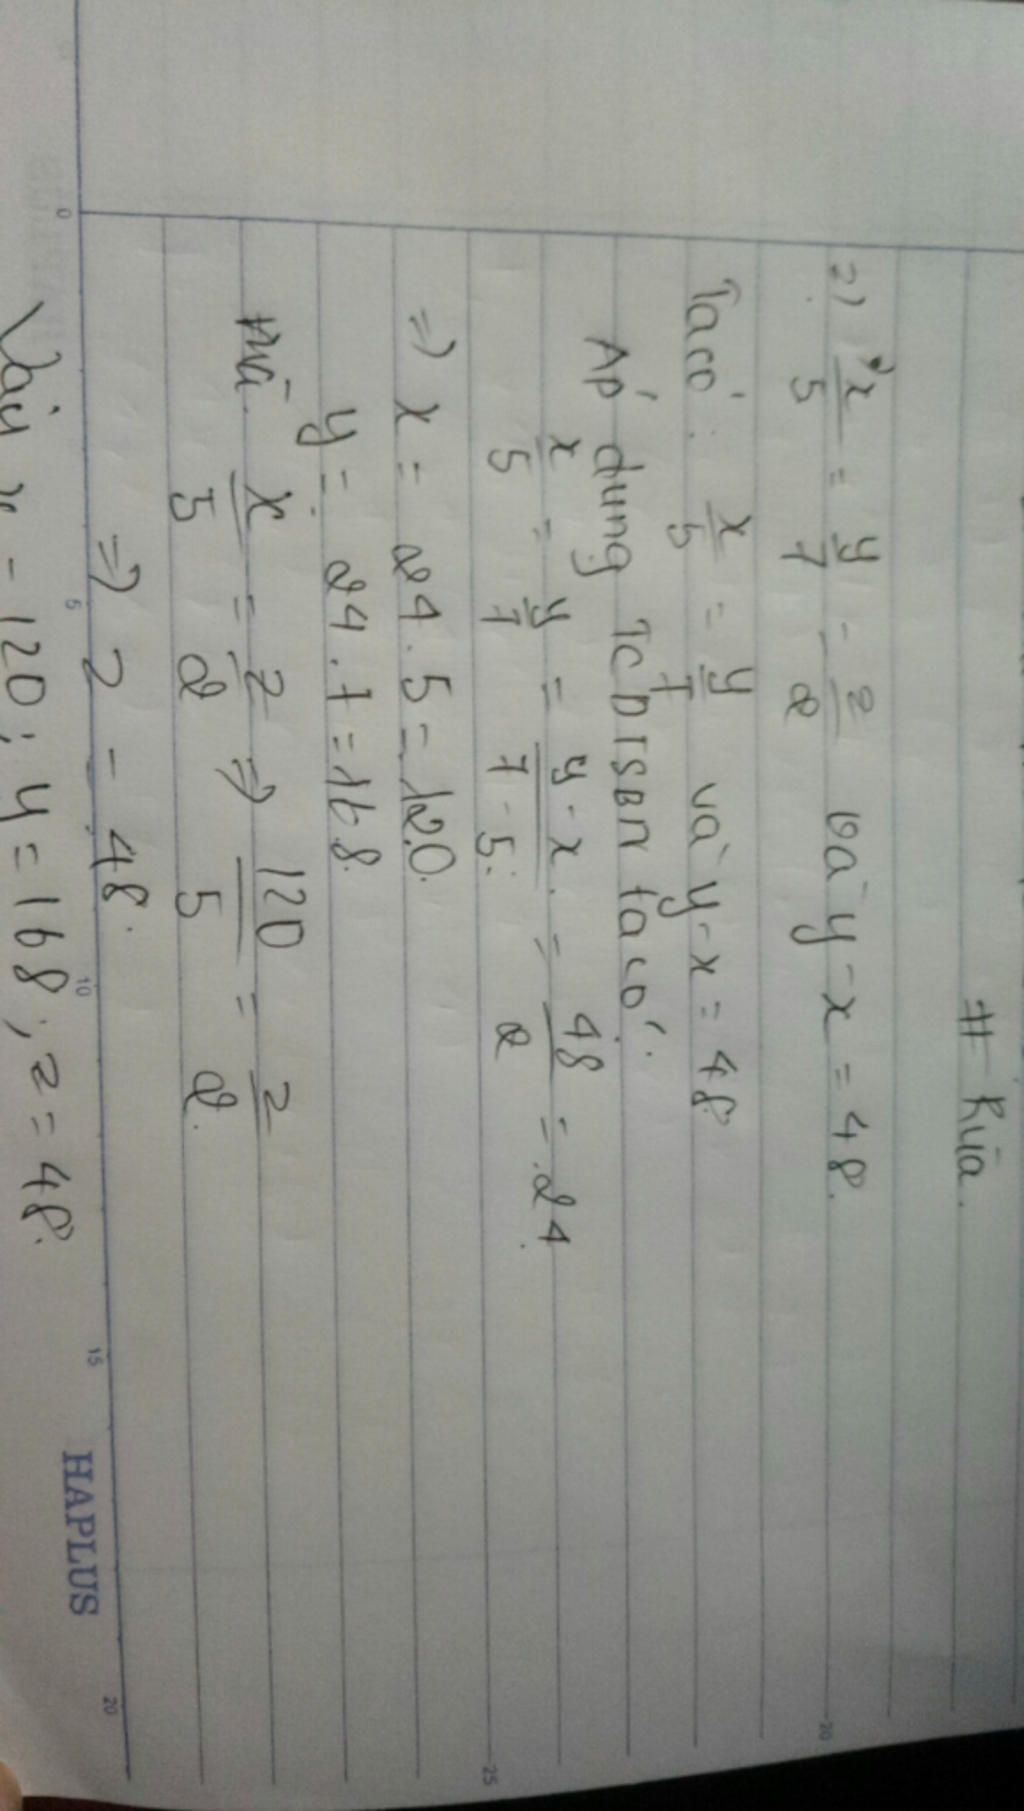 # Rùa.
2) x/5 = y/7 = z/2 và y - x = 48.
Ta có: x/5 = y/7 và y - x = 48
Áp dụng TCDTSBN ta có:
x/5 = y/7 = y - x/7 - 5 = 48/2 = 24
=> x = 24 . 5 = 120.
y = 24 . 7 = 168.
mà x/5 = z/2 => 120/5 = z/2
=> z = 48.
Vậy x = 120; y = 168; z = 48.
HAPLUS
0 5 10 15 20
20
25